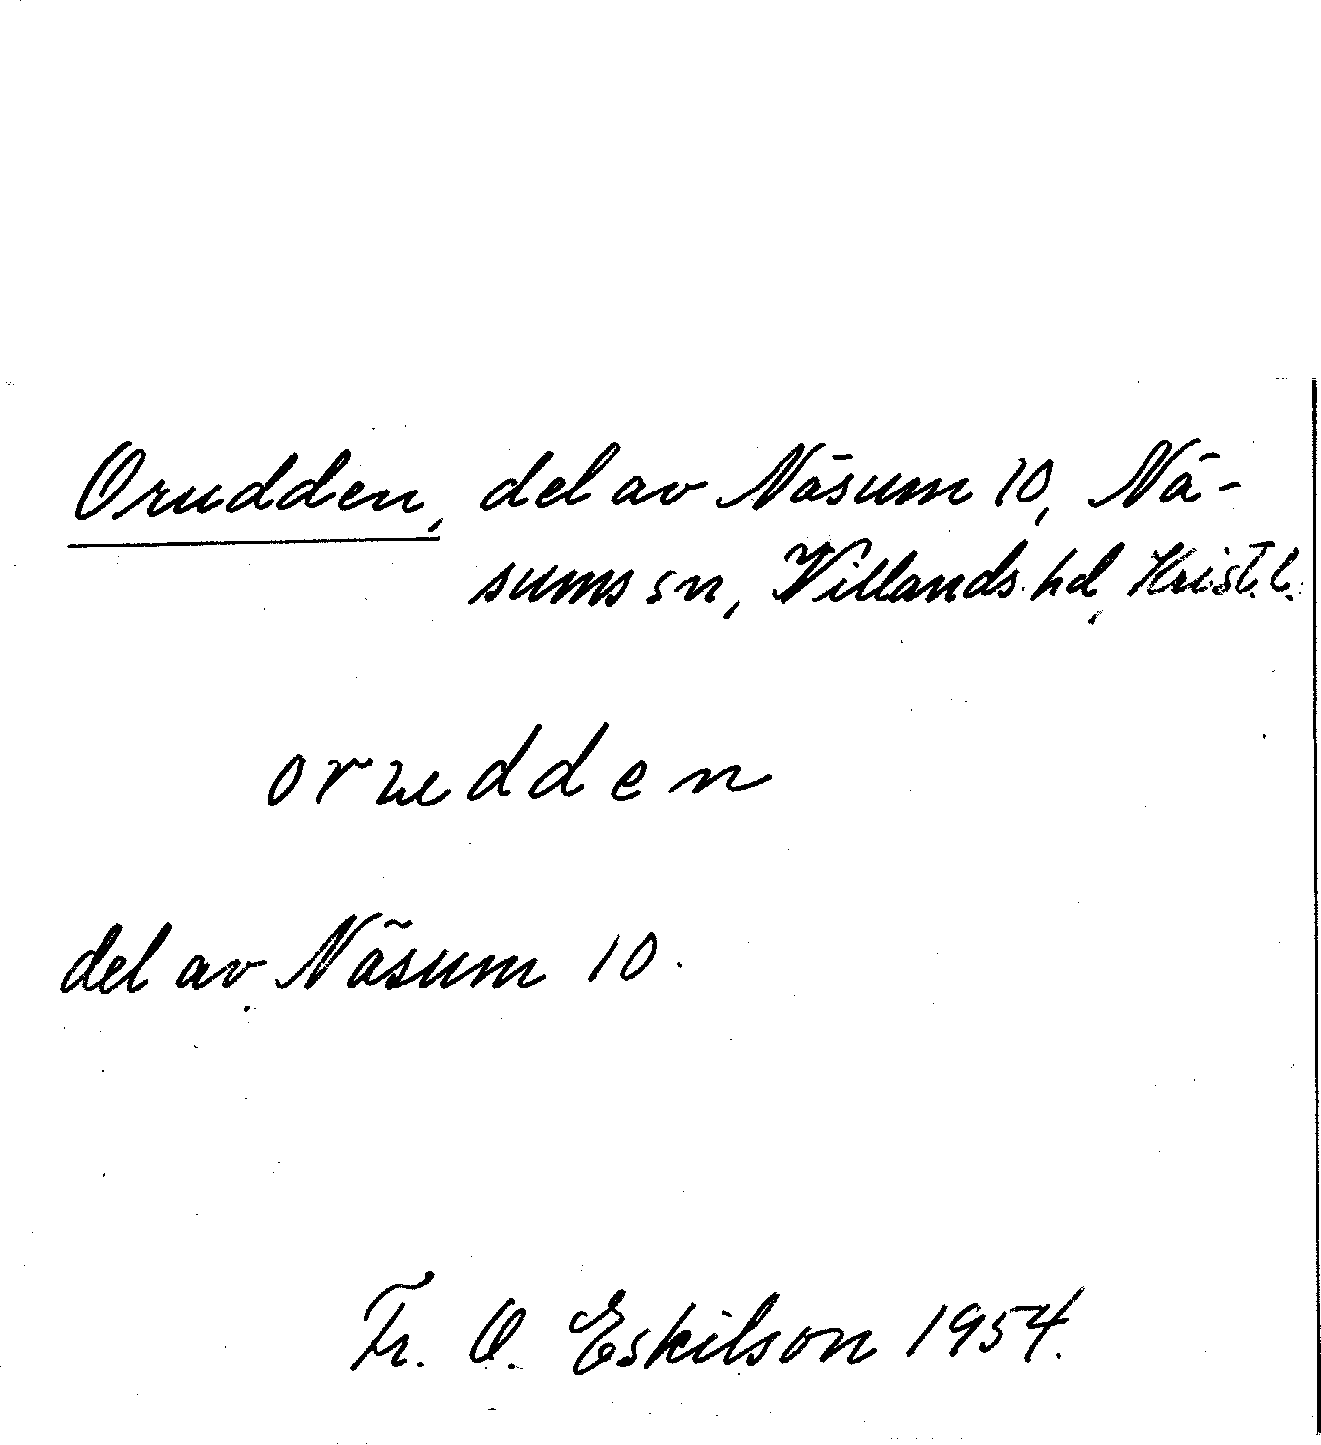 Orudden, del av Näsum 10, Nä-
sums sn, Villands hd, Krist. l.
orudden
del av Näsum 10.
Fr. O. Eskilson 1954.